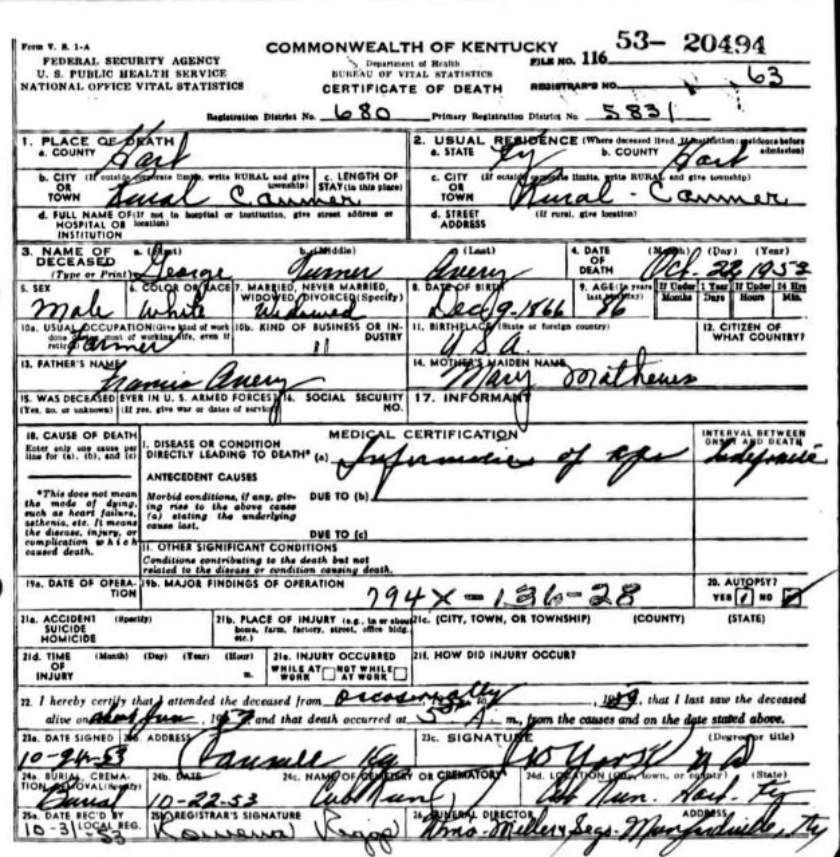 Form V. S. 1-A
FEDERAL SECURITY AGENCY
U. S. PUBLIC HEALTH SERVICE
NATIONAL OFFICE VITAL STATISTICS
COMMONWEALTH OF KENTUCKY
Department of Health
BUREAU OF VITAL STATISTICS
CERTIFICATE OF DEATH
FILE NO. 116 53- 20494
REGISTRAR'S NO. 63
Registration District No. 680 Primary Registration District No. 5831
1. PLACE OF DEATH
a. COUNTY Hart
2. USUAL RESIDENCE (Where deceased lived. If institution: residence before admission)
a. STATE Ky b. COUNTY Hart
b. CITY (If outside corporate limits, write RURAL and give township)
OR
TOWN Rural Canmer
c. LENGTH OF STAY (in this place)
c. CITY (If outside corporate limits, write RURAL and give township)
OR
TOWN Rural - Canmer
d. FULL NAME OF (If not in hospital or institution, give street address or location)
HOSPITAL OR
INSTITUTION
d. STREET ADDRESS (If rural, give location)
3. NAME OF DECEASED (Type or Print)
a. (First) George b. (Middle) Turner c. (Last) Avery
4. DATE OF DEATH (Month) (Day) (Year) Oct. 22, 1953
5. SEX Male
6. COLOR OR RACE White
7. MARRIED, NEVER MARRIED, WIDOWED, DIVORCED (Specify) Widowed
8. DATE OF BIRTH Dec 9-1866
9. AGE (In years last birthday) 86
If Under 1 Year Months Days
If Under 24 Hrs Hours Min.
10a. USUAL OCCUPATION (Give kind of work done during most of working life, even if retired) Farmer
10b. KIND OF BUSINESS OR INDUSTRY "
11. BIRTHPLACE (State or foreign country) U.S.A.
12. CITIZEN OF WHAT COUNTRY?
13. FATHER'S NAME Francis Avery
14. MOTHER'S MAIDEN NAME Mary Mathews
15. WAS DECEASED EVER IN U. S. ARMED FORCES?
(Yes, no, or unknown) (If yes, give war or dates of service)
16. SOCIAL SECURITY NO.
17. INFORMANT
18. CAUSE OF DEATH
Enter only one cause per line for (a), (b), and (c)
MEDICAL CERTIFICATION
INTERVAL BETWEEN ONSET AND DEATH
I. DISEASE OR CONDITION
DIRECTLY LEADING TO DEATH* (a) of age
*This does not mean the mode of dying, such as heart failure, asthenia, etc. It means the disease, injury, or complication which caused death.
ANTECEDENT CAUSES
Morbid conditions, if any, giving rise to the above cause (a) stating the underlying cause last.
DUE TO (b)
DUE TO (c)
II. OTHER SIGNIFICANT CONDITIONS
Conditions contributing to the death but not related to the disease or condition causing death.
19a. DATE OF OPERATION
19b. MAJOR FINDINGS OF OPERATION
794X - 136-28
20. AUTOPSY?
YES NO
21a. ACCIDENT (Specify)
SUICIDE
HOMICIDE
21b. PLACE OF INJURY (e.g., in or about home, farm, factory, street, office bldg., etc.)
21c. (CITY, TOWN, OR TOWNSHIP) (COUNTY) (STATE)
21d. TIME OF INJURY (Month) (Day) (Year) (Hour) m.
21e. INJURY OCCURRED
WHILE AT WORK NOT WHILE AT WORK
21f. HOW DID INJURY OCCUR?
22. I hereby certify that I attended the deceased from to, 19, that I last saw the deceased
alive on, 19 and that death occurred at A. m., from the causes and on the date stated above.
23a. DATE SIGNED 10-24-53
23b. ADDRESS Ky
23c. SIGNATURE (Degree or title) MD
24a. BURIAL, CREMATION, REMOVAL (Specify) Burial
24b. DATE 10-22-53
24c. NAME OF CEMETERY OR CREMATORY Cub Run
24d. LOCATION (City, town, or county) (State) Cub Run. Hart - Ky
25a. DATE REC'D BY LOCAL REG. 10-31-53
25b. REGISTRAR'S SIGNATURE Rowena
26. FUNERAL DIRECTOR ADDRESS
Munfordville, Ky